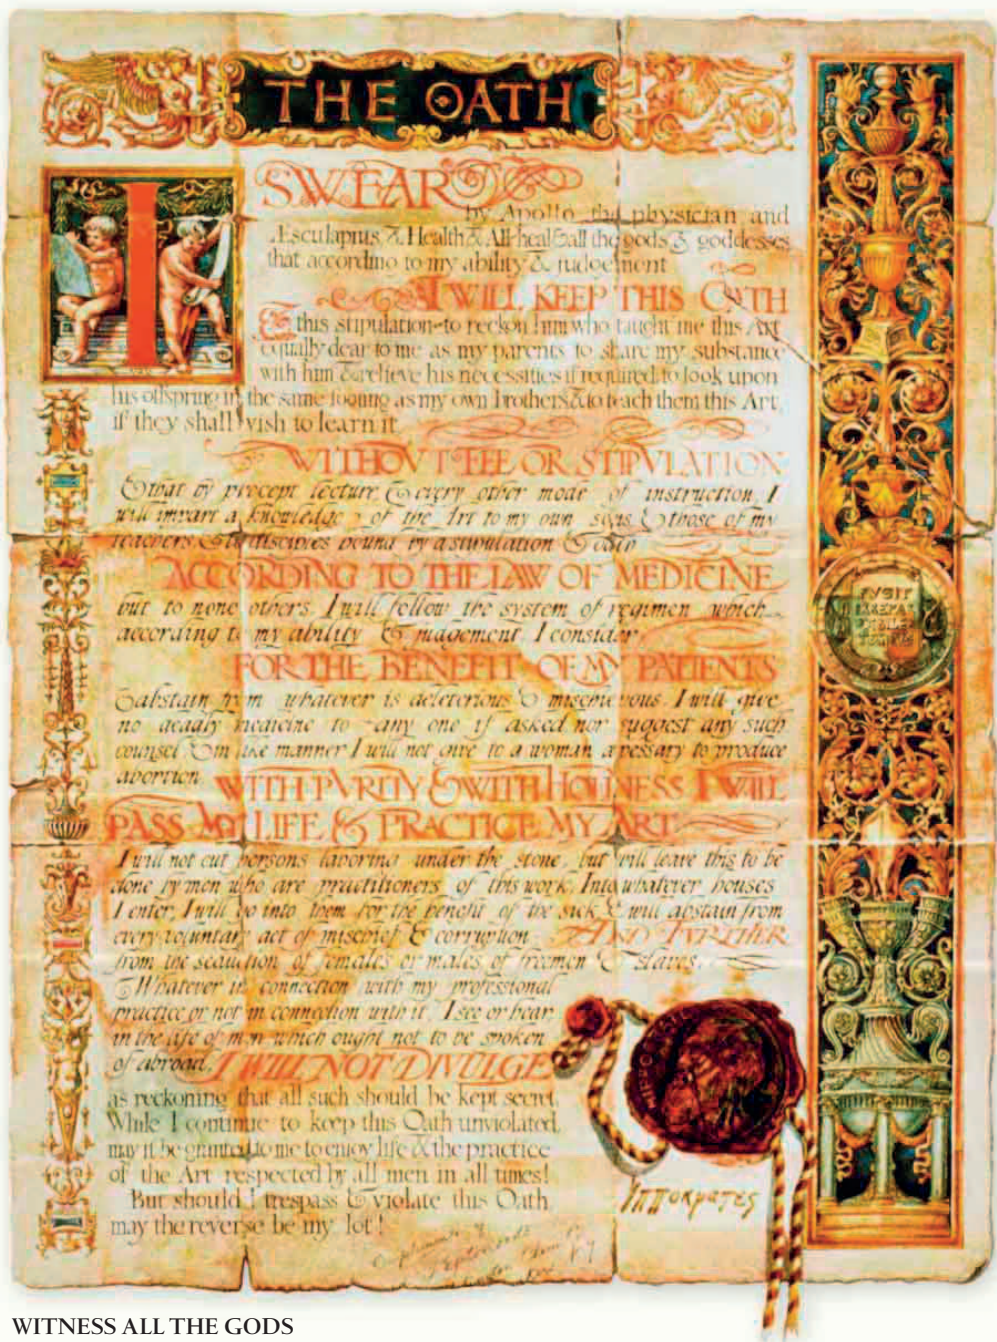 THE OATH
I
SWEAR
by Apollo the physician and
Æsculapius & Health & All-heal & all the gods & goddesses
that according to my ability & judgement
I WILL KEEP THIS OATH
& this stipulation-to reckon him who taught me this Art
equally dear to me as my parents to share my substance
with him & relieve his necessities if required, to look upon
his offspring in the same footing as my own brothers & to teach them this Art,
if they shall wish to learn it
WITHOVT FEE OR STIPVLATION
& that by precept lecture & every other mode of instruction, I
will impart a knowledge of the Art to my own sons & those of my
teachers & to disciples bound by a stipulation & oath
ACCORDING TO THE LAW OF MEDICINE
but to none others. I will follow the system of regimen which
according to my ability & judgement I consider
FOR THE BENEFIT OF MY PATIENTS
& abstain from whatever is deleterious & mischievous. I will give
no deadly medicine to any one if asked nor suggest any such
counsel & in like manner I will not give to a woman a pessary to produce
abortion.
WITH PVRITY & WITH HOLINESS I WILL
PASS MY LIFE & PRACTICE MY ART
I will not cut persons laboring under the stone, but will leave this to be
done by men who are practitioners of this work. Into whatever houses
I enter, I will go into them for the benefit of the sick & will abstain from
every voluntary act of mischief & corruption AND FVRTHER
from the seduction of females or males of freemen & slaves.
Whatever in connection with my professional
practice or not in connection with it, I see or hear
in the life of men which ought not to be spoken
of abroad, I WILL NOT DIVULGE
as reckoning that all such should be kept secret.
While I continue to keep this Oath unviolated,
may it be granted to me to enjoy life & the practice
of the Art respected by all men in all times!
But should I trespass & violate this Oath
may the reverse be my lot!
Ιπποκρατες
WITNESS ALL THE GODS